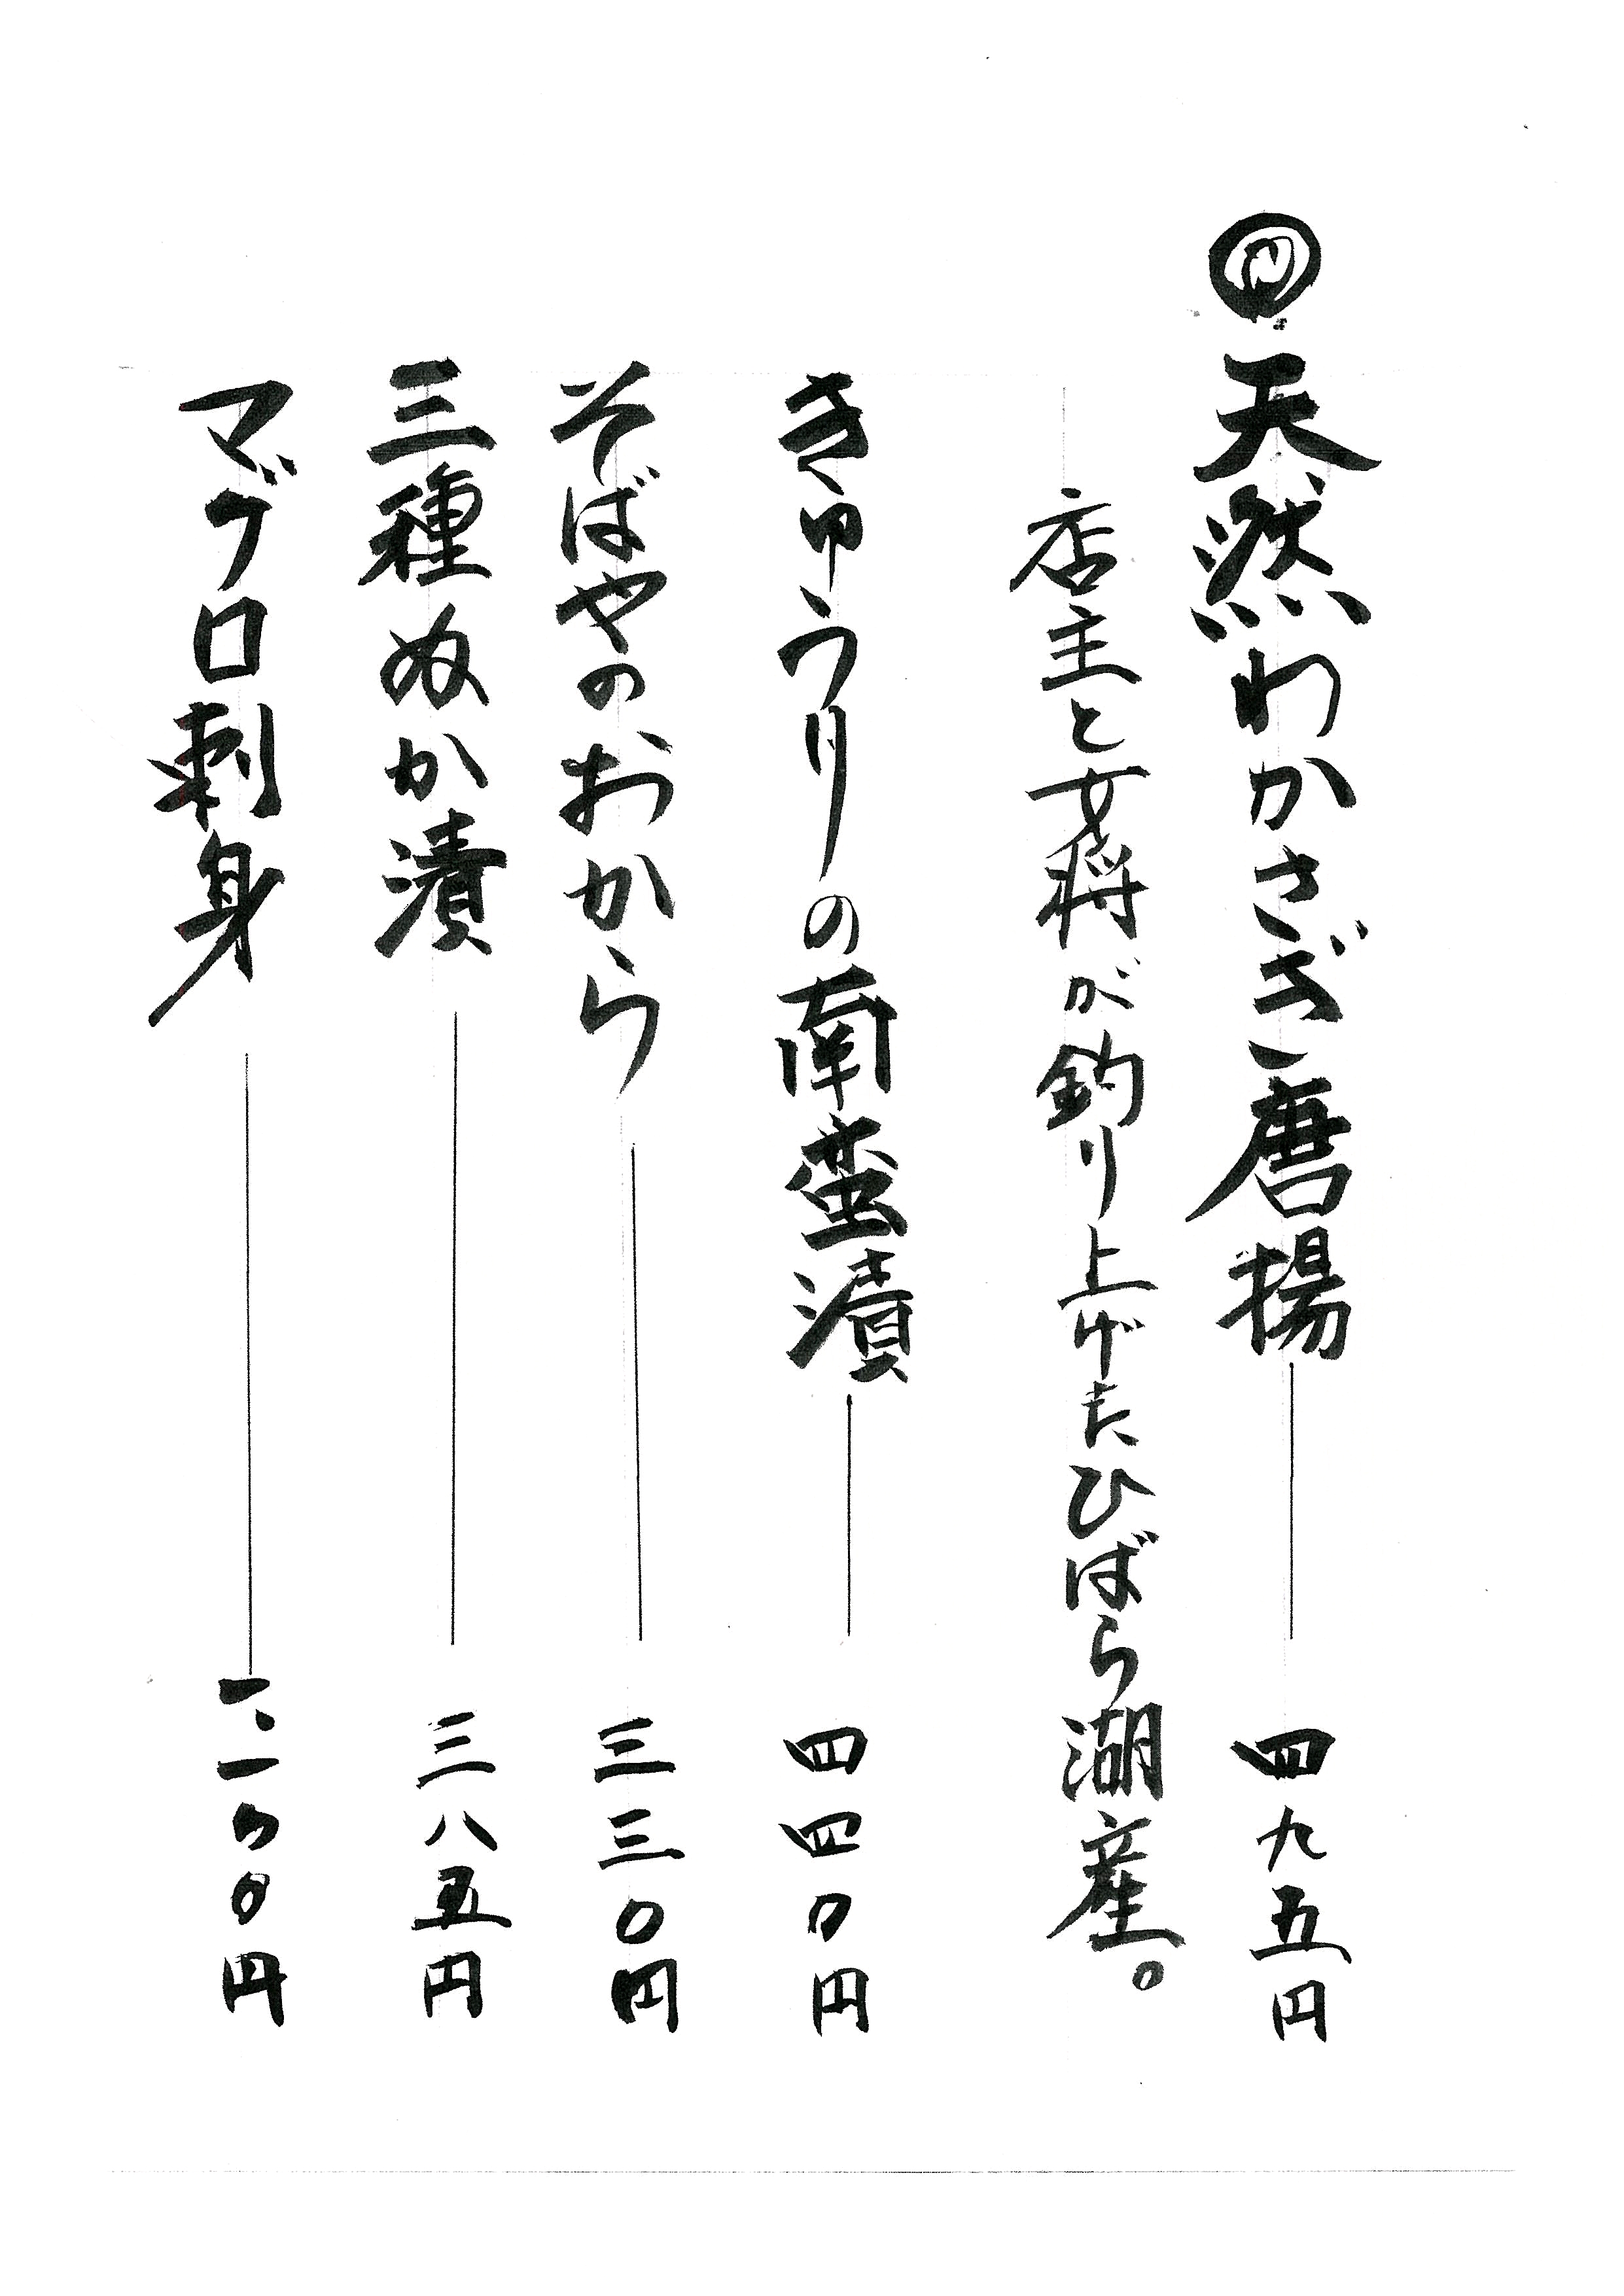 天然わかさぎ唐揚 四九五円
店主と女将が釣り上げたひばら湖産。
きゅうりの南蛮漬 四四〇円
そばやのおから 三三〇円
三種ぬか漬 三八五円
マグロ刺身 一、一〇〇円